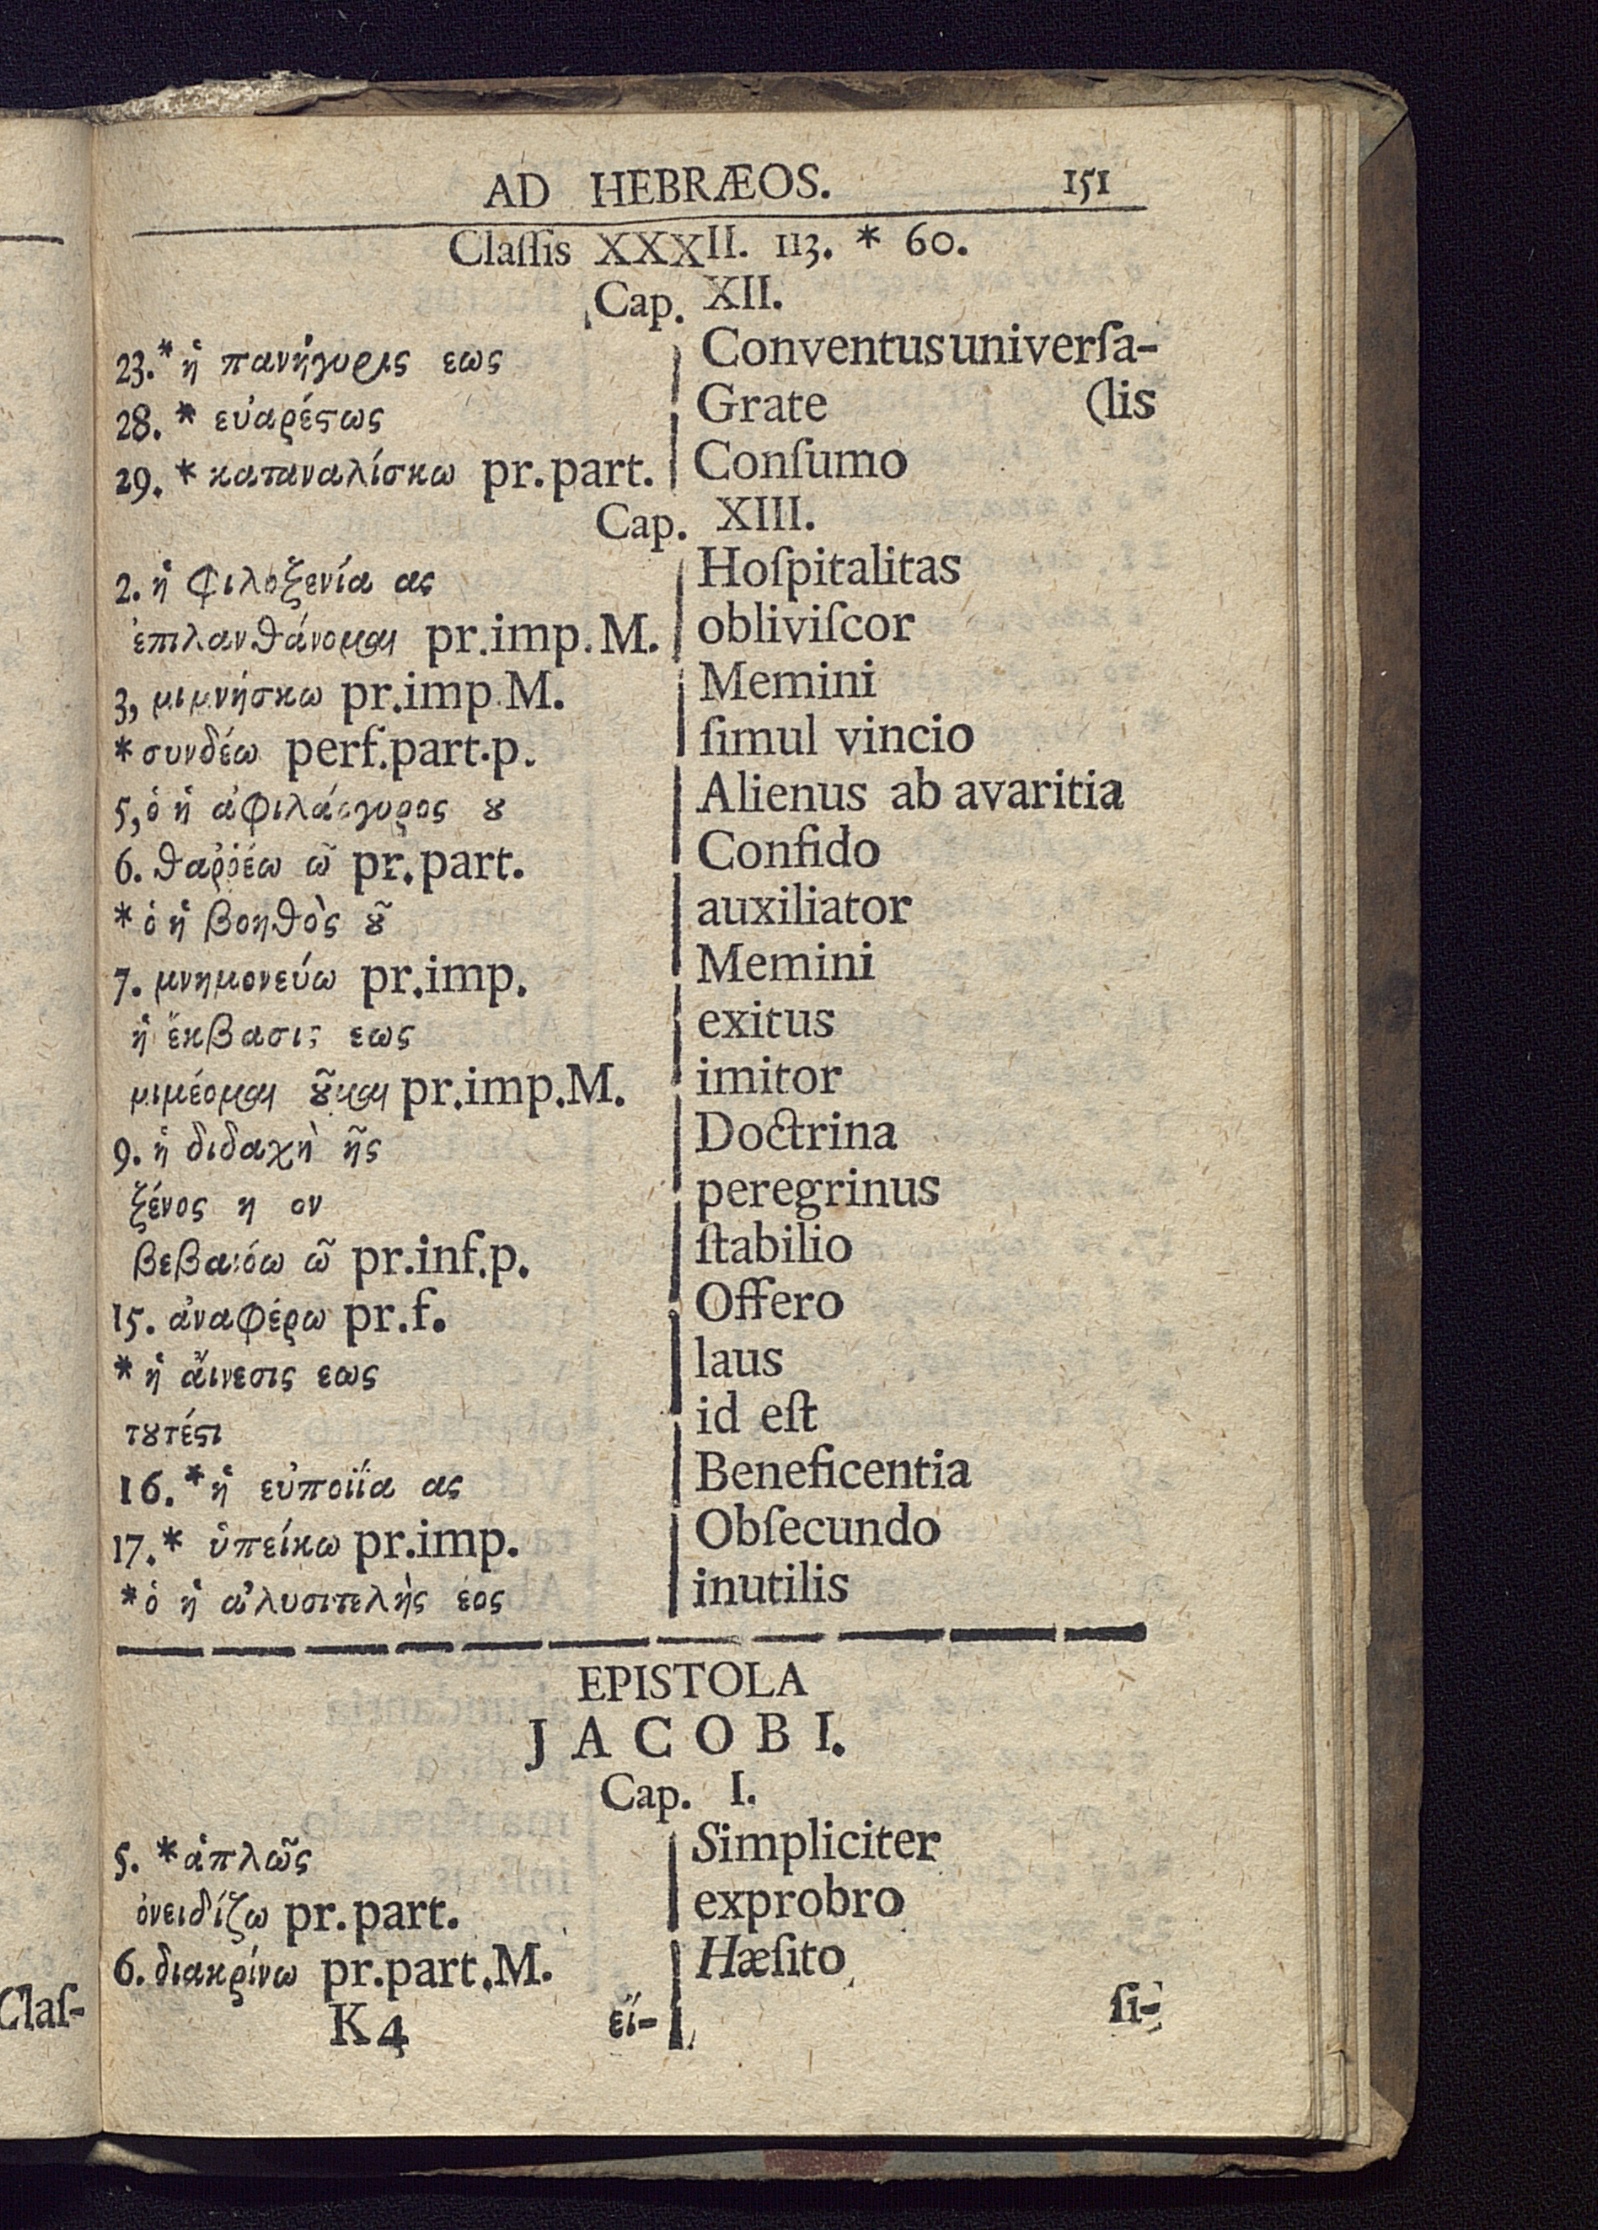 AD HEBRÆOS. 151
Claſſis XXXII. 113. * 60.
Cap. XII.
23.* ἡ πανήγυρις εως Conventus univerſa-
28. * εὐαρέϛως Grate (lis
29. * καταναλίσκω pr.part. Conſumo
Cap. XIII.
2. ἡ φιλοξενία ας Hoſpitalitas
ἐπιλανθάνομαι pr.imp.M. obliviſcor
3, μιμνήσκω pr.imp.M. Memini
* συνδέω perf.part.p. ſimul vincio
5, ὁ ἡ ἀφιλάργυρος ȣ Alienus ab avaritia
6. θαῤῥέω ῶ pr.part. Confido
* ὁ ἡ βοηθὸς ȣ͂ auxiliator
7. μνημονεύω pr.imp. Memini
ἡ ἔκβασις εως exitus
μιμέομαι ȣ͂μαι pr.imp.M. imitor
9. ἡ διδαχὴ ῆς Doctrina
ξένος η ον peregrinus
βεβαιόω ῶ pr.inf.p. ſtabilio
15. ἀναφέρω pr.f. Offero
* ἡ ἄινεσις εως laus
τȣτέϛι id eſt
16. * ἡ εὐποιΐα ας Beneficentia
17. * ὑπείκω pr.imp. Obſecundo
* ὁ ἡ ἀλυσιτελὴς έος inutilis
EPISTOLA
JACOBI.
Cap. I.
5. * ἁπλῶς Simpliciter
ὀνειδίζω pr.part. exprobro
6. διακρίνω pr.part.M. Hæſito
Claſ-
K4 εἴ- ſi-